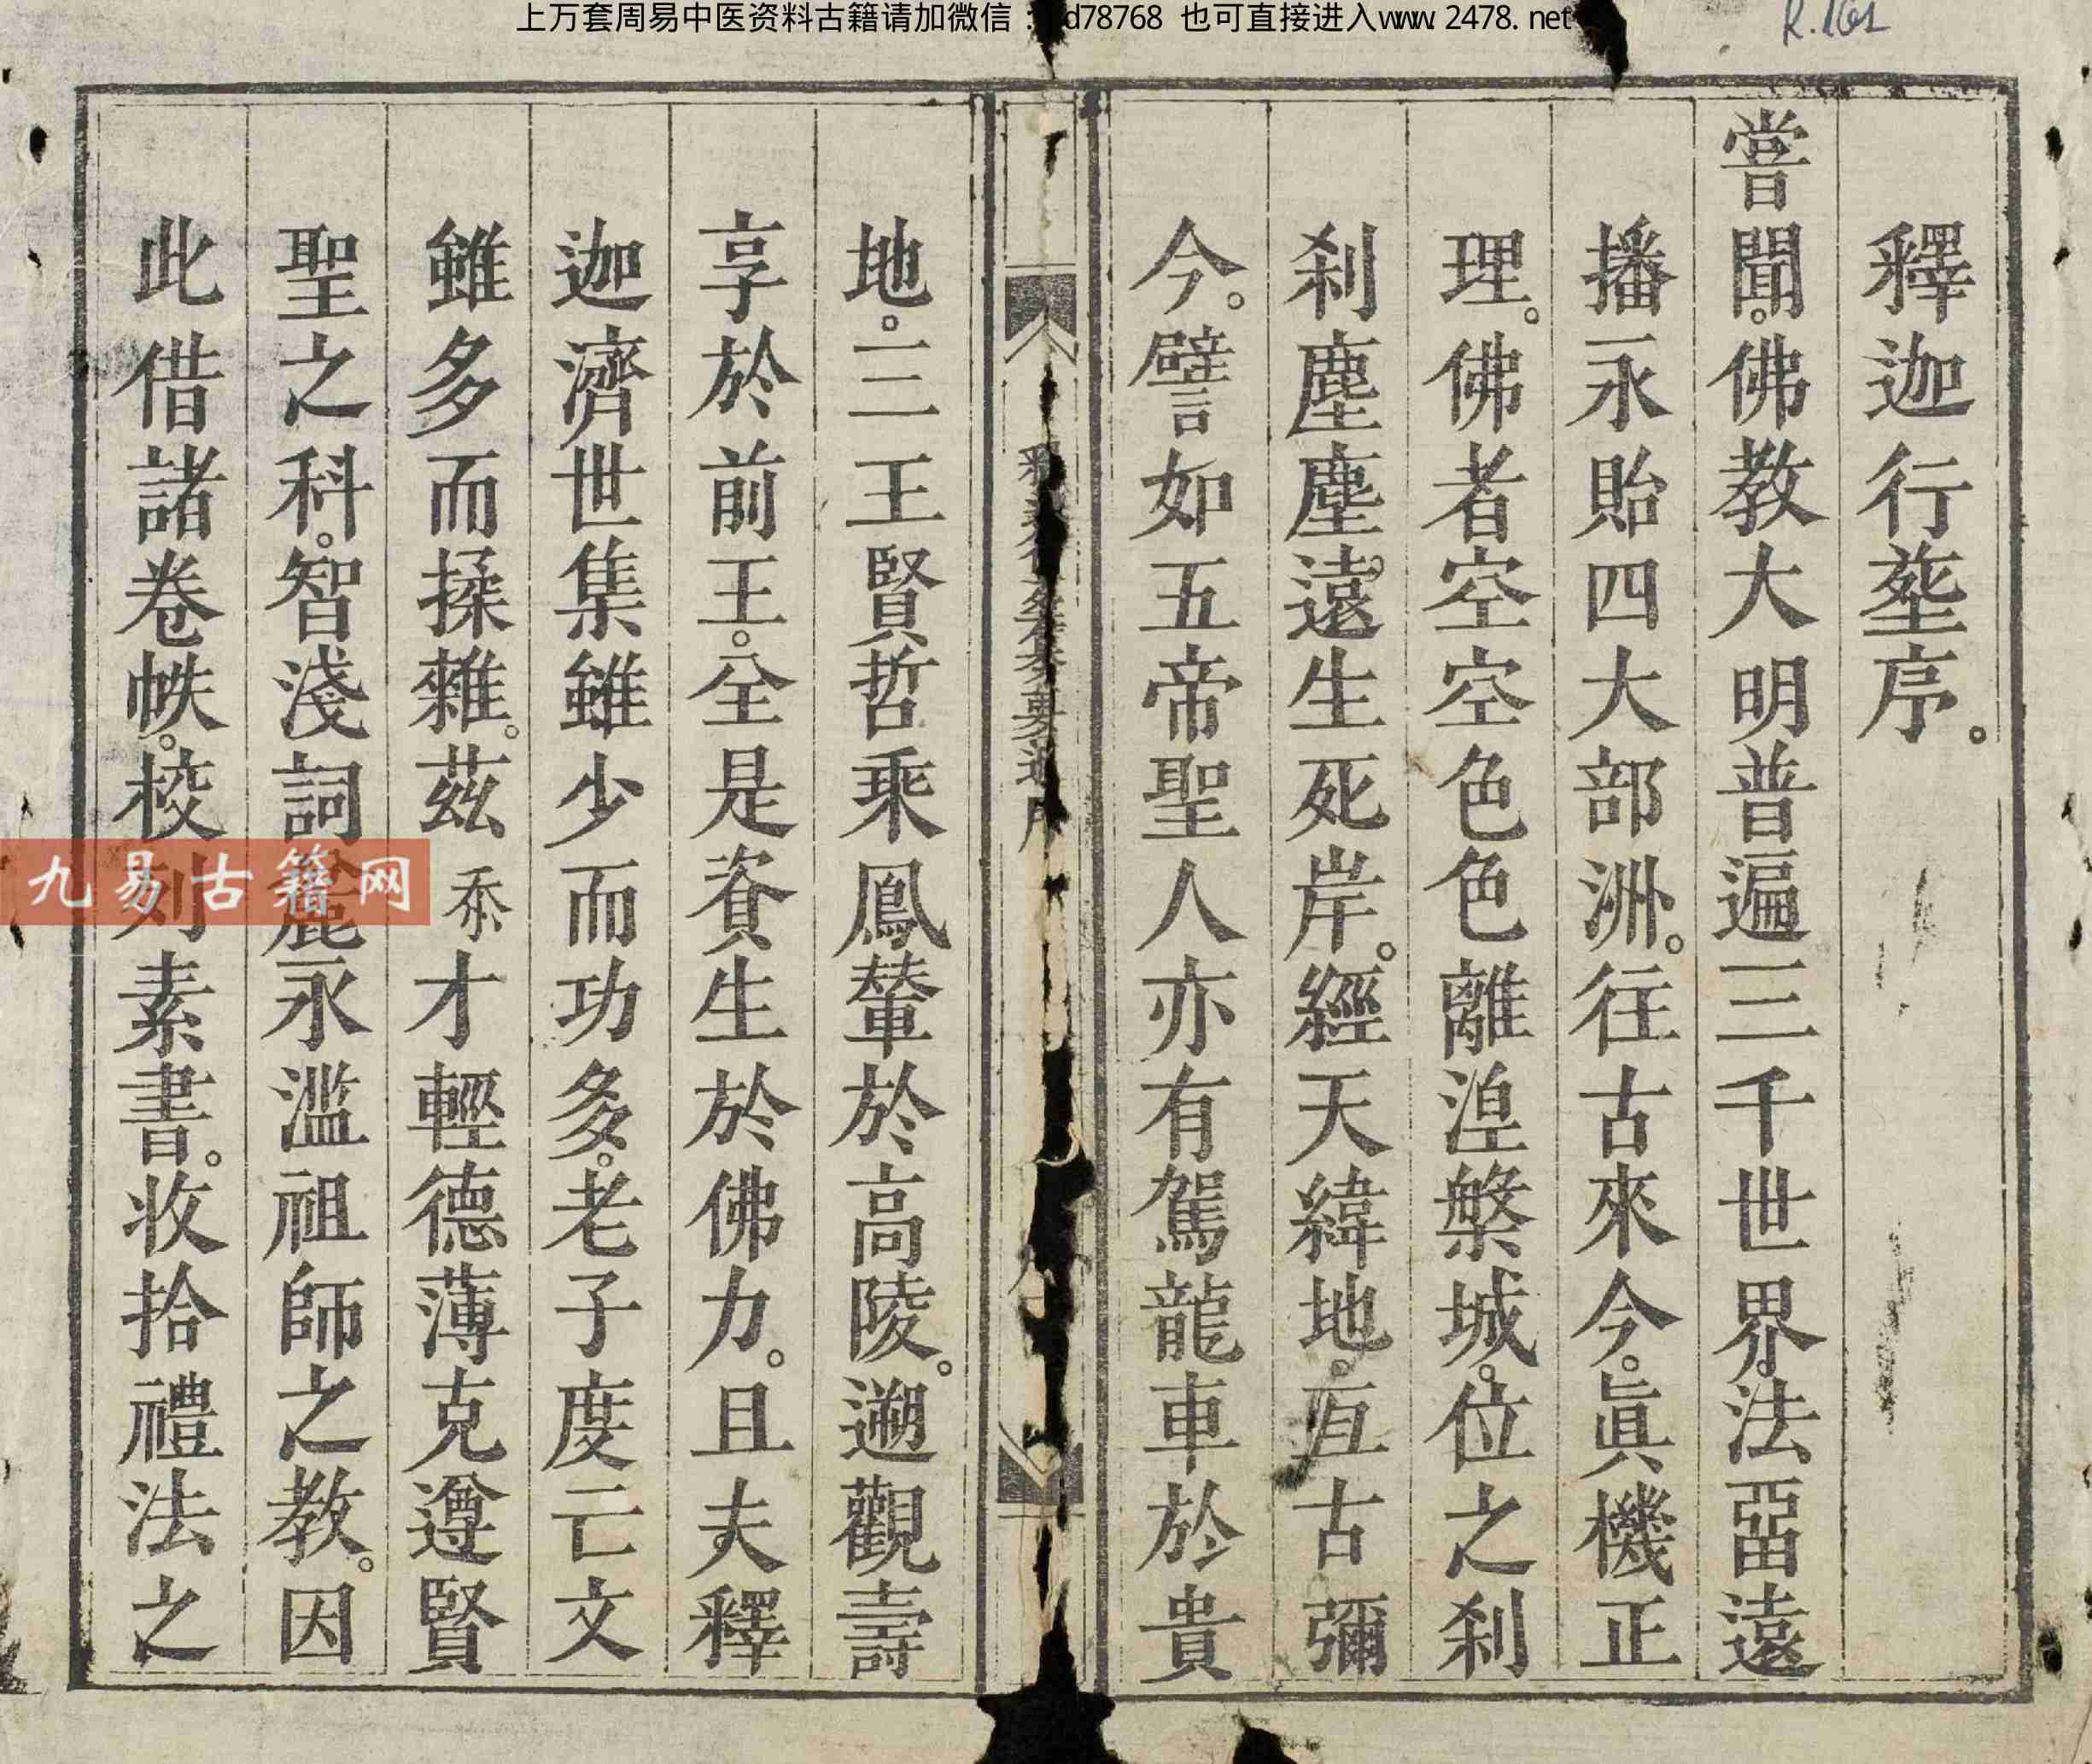 上万套周易中医资料古籍请加微信：d78768 也可直接进入www.2478.net
R.161
釋迦行𡏦序。
嘗聞。佛教大明普遍三千世界。法畱遠
播永貽四大部洲。往古來今。眞機正
理。佛者空空色色離湼槃城。位之刹
刹塵塵。遠生死岸。經天緯地。亙古彌
今。譬如五帝聖人亦有駕龍車於貴
地。三王賢哲乘鳳輦於高陵。遡觀壽
享於前王。全是資生於佛力。且夫釋
迦濟世集雖少而功多。老子度亡文
雖多而揉雜。茲忝才輕德薄克遵賢
聖之科。智淺詞麄永濫祖師之教。因
此借諸卷帙。校刻素書。收拾禮法之
九易古籍网